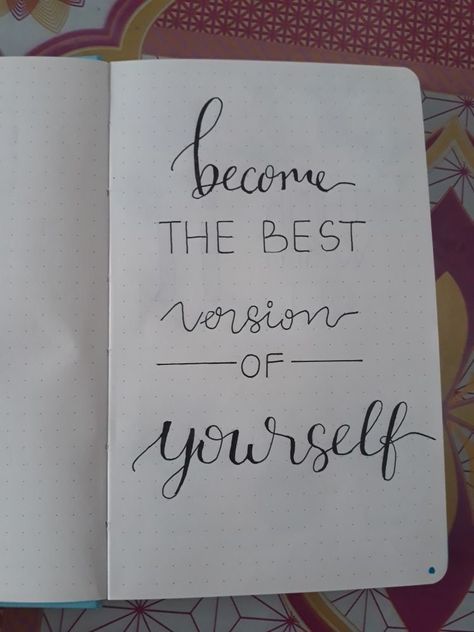 become
THE BEST
version
OF
yourself